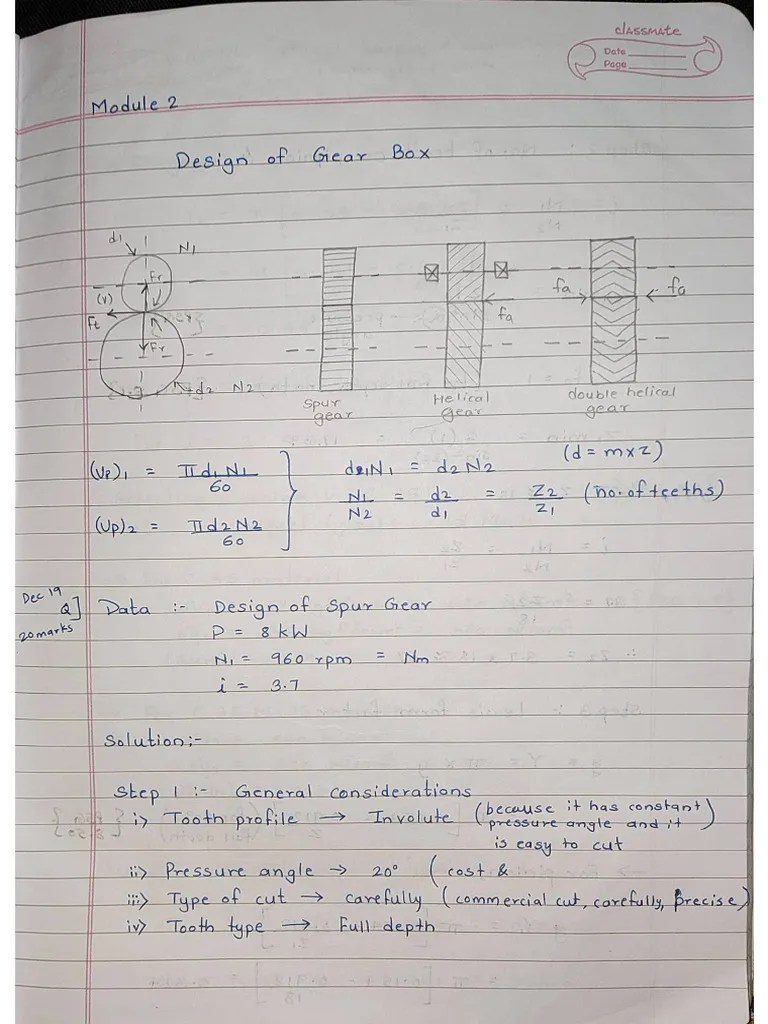 classmate
Date
Page
Module 2
Design of Gear Box
d1 N1
Fr
(V)
Ft
Fr
d2 N2
Spur gear
fa
Helical gear
fa fa
double helical gear
(Vp)1 = πd1N1/60
(Vp)2 = πd2N2/60
d1N1 = d2N2 (d = m×z)
N1/N2 = d2/d1 = Z2/Z1 (no. of teeths)
Dec 19
Q]
20 marks
Data :- Design of Spur Gear
P = 8 kW
N1 = 960 rpm = Nm
i = 3.7
Solution:-
Step 1 :- General considerations
i> Tooth profile → Involute (because it has constant
pressure angle and it)
is easy to cut
ii> Pressure angle → 20° (cost &
iii> Type of cut → carefully (commercial cut, carefully, Precise)
iv> Tooth type → Full depth